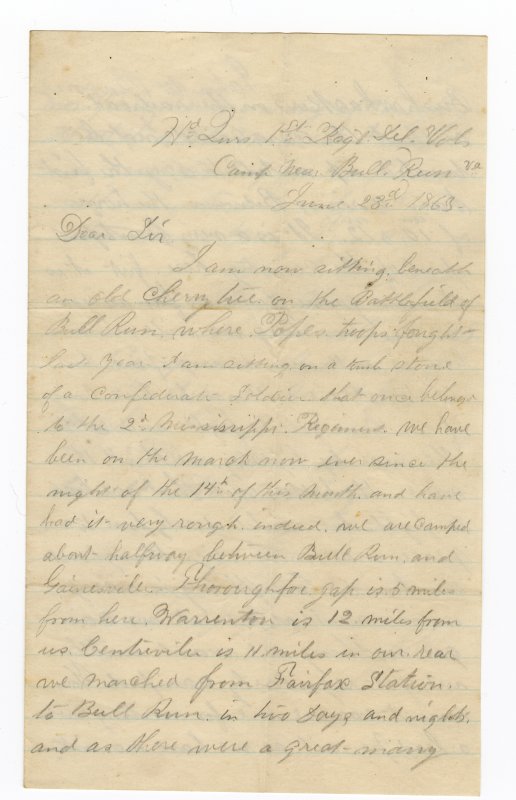 Hd Qurs 1st Regt Del. Vols
Camp Near Bull Run Va
June 23d 1863
Dear Sir
I am now sitting beneath
an old cherry tree on the Battlefield of
Bull Run where Popes troops fought
last year I am sitting on a tomb stone
of a Confederate Soldier that once belong
to the 2d Mississippi Regement. We have
been on the march now ever since the
night of the 14th of this Month and have
had it very rough indeed. we are camped
about halfway between Bull Run and
Gainesville. Thoroughfare gap is 5 miles
from here. Warrenton is 12 miles from
us. Centreville is 11 miles in our rear
we marched from Fairfax Station
to Bull Run in two Days and nights.
and as there were a great many